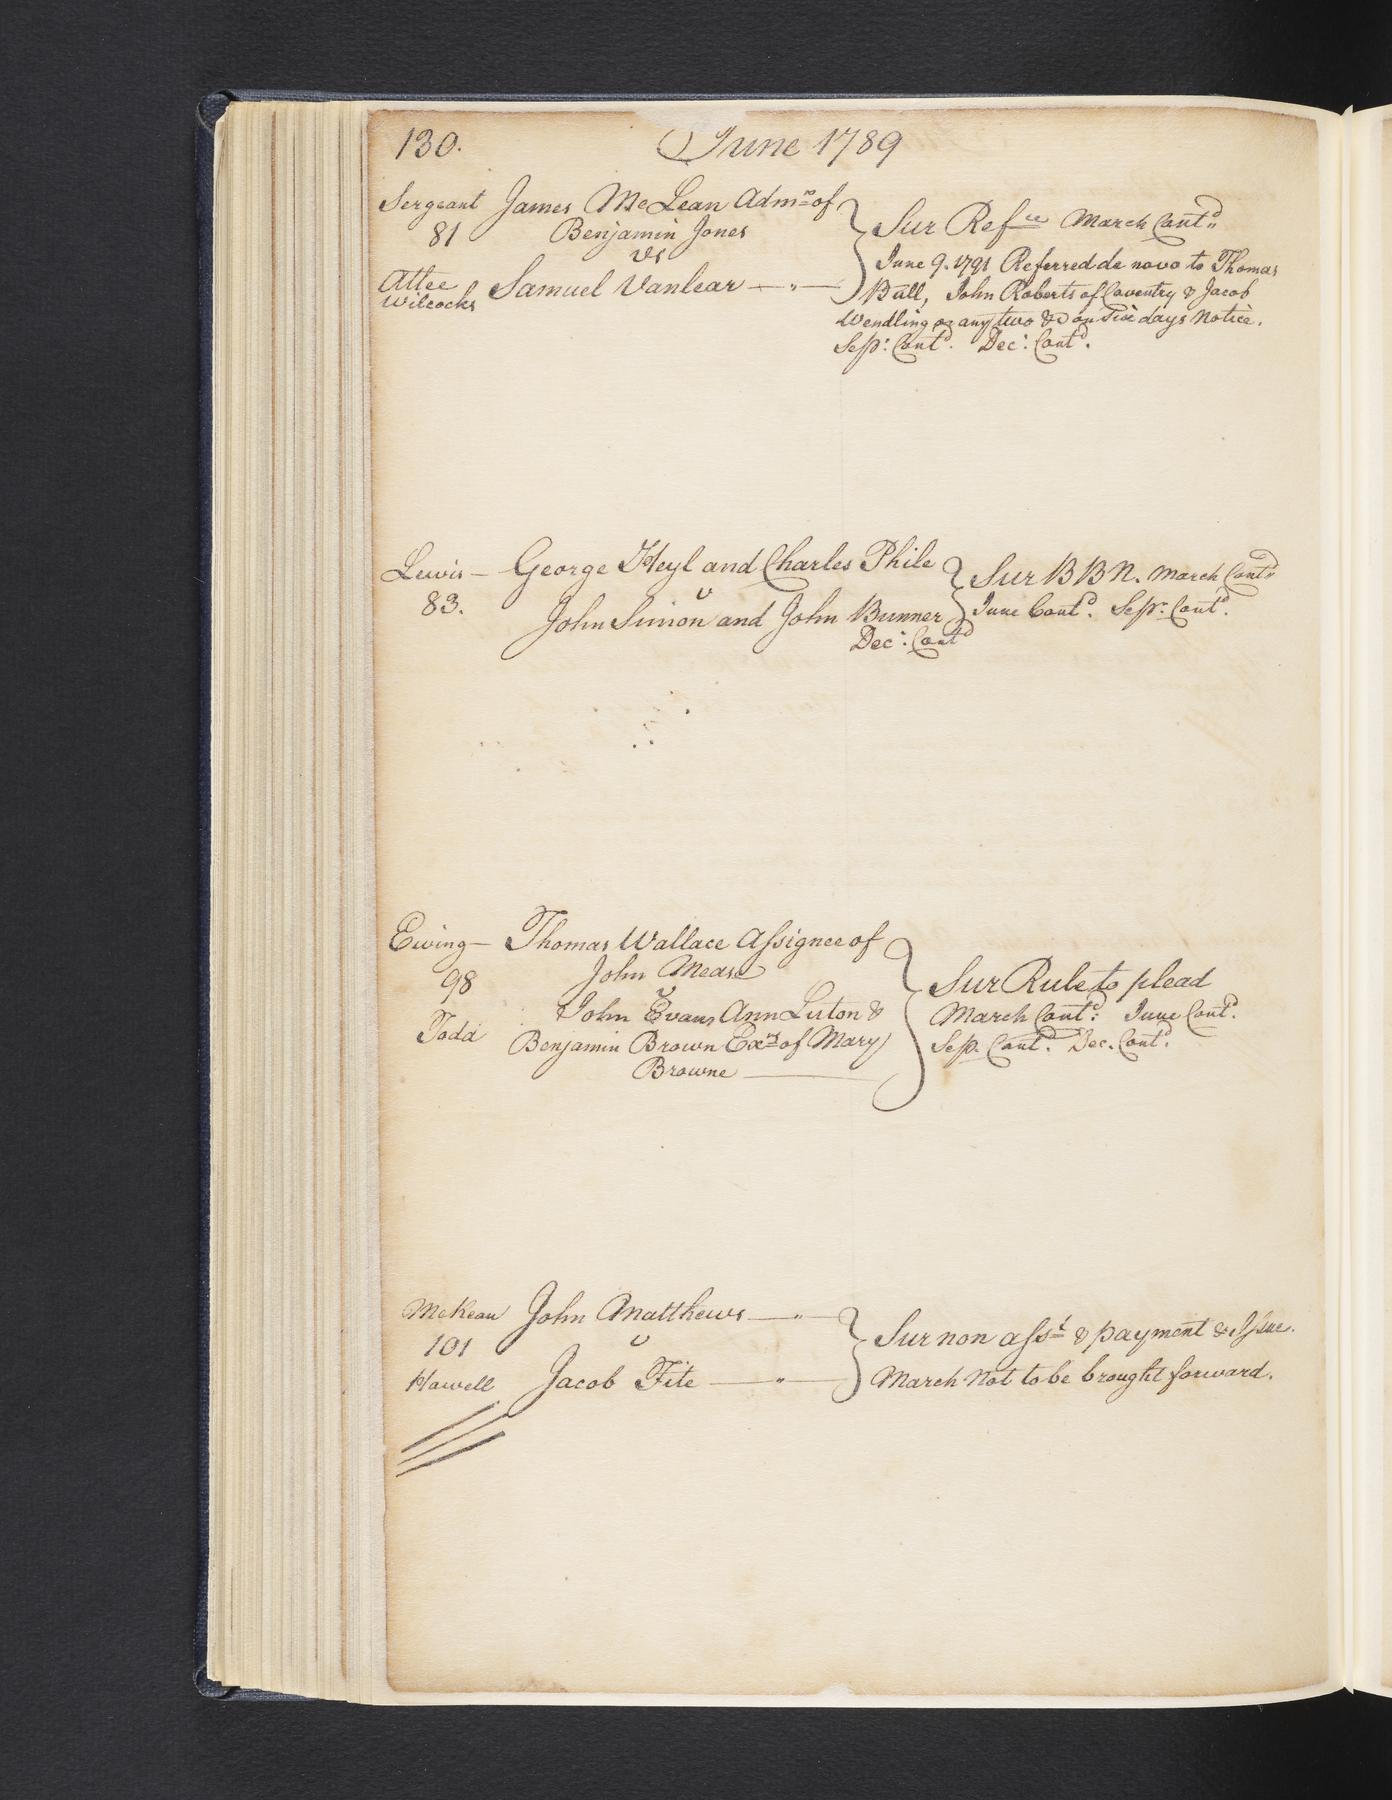 130. June 1789
Sergeant James McLean Admro of
81 Benjamin Jones
vs
Atlee Samuel Vanlear
Wilcocks
Sur Refce March Contd
June 9. 1791 Referred de novo to Thomas
Bull, John Roberts of Coventry & Jacob
Wendling or any two &c on Six days Notice.
Sepr: Contd. Decr: Contd.
Lewis - George Heyl and Charles Phile
83. v
John Simon and John Bunner
Sur BBN. March Contd
June Contd. Sepr. Contd.
Decr: Contd
Ewing - Thomas Wallace Assignee of
98 John Mease
v
Todd John Evans Ann Liston &
Benjamin Brown Exrs of Mary
Browne
Sur Rule to plead
March Contd: June Contd.
Sep. Contd. Dec. Contd.
McKean John Matthews
101 v
Howell Jacob Fite
Sur non asst & payment & Issue.
March Not to be brought forward.